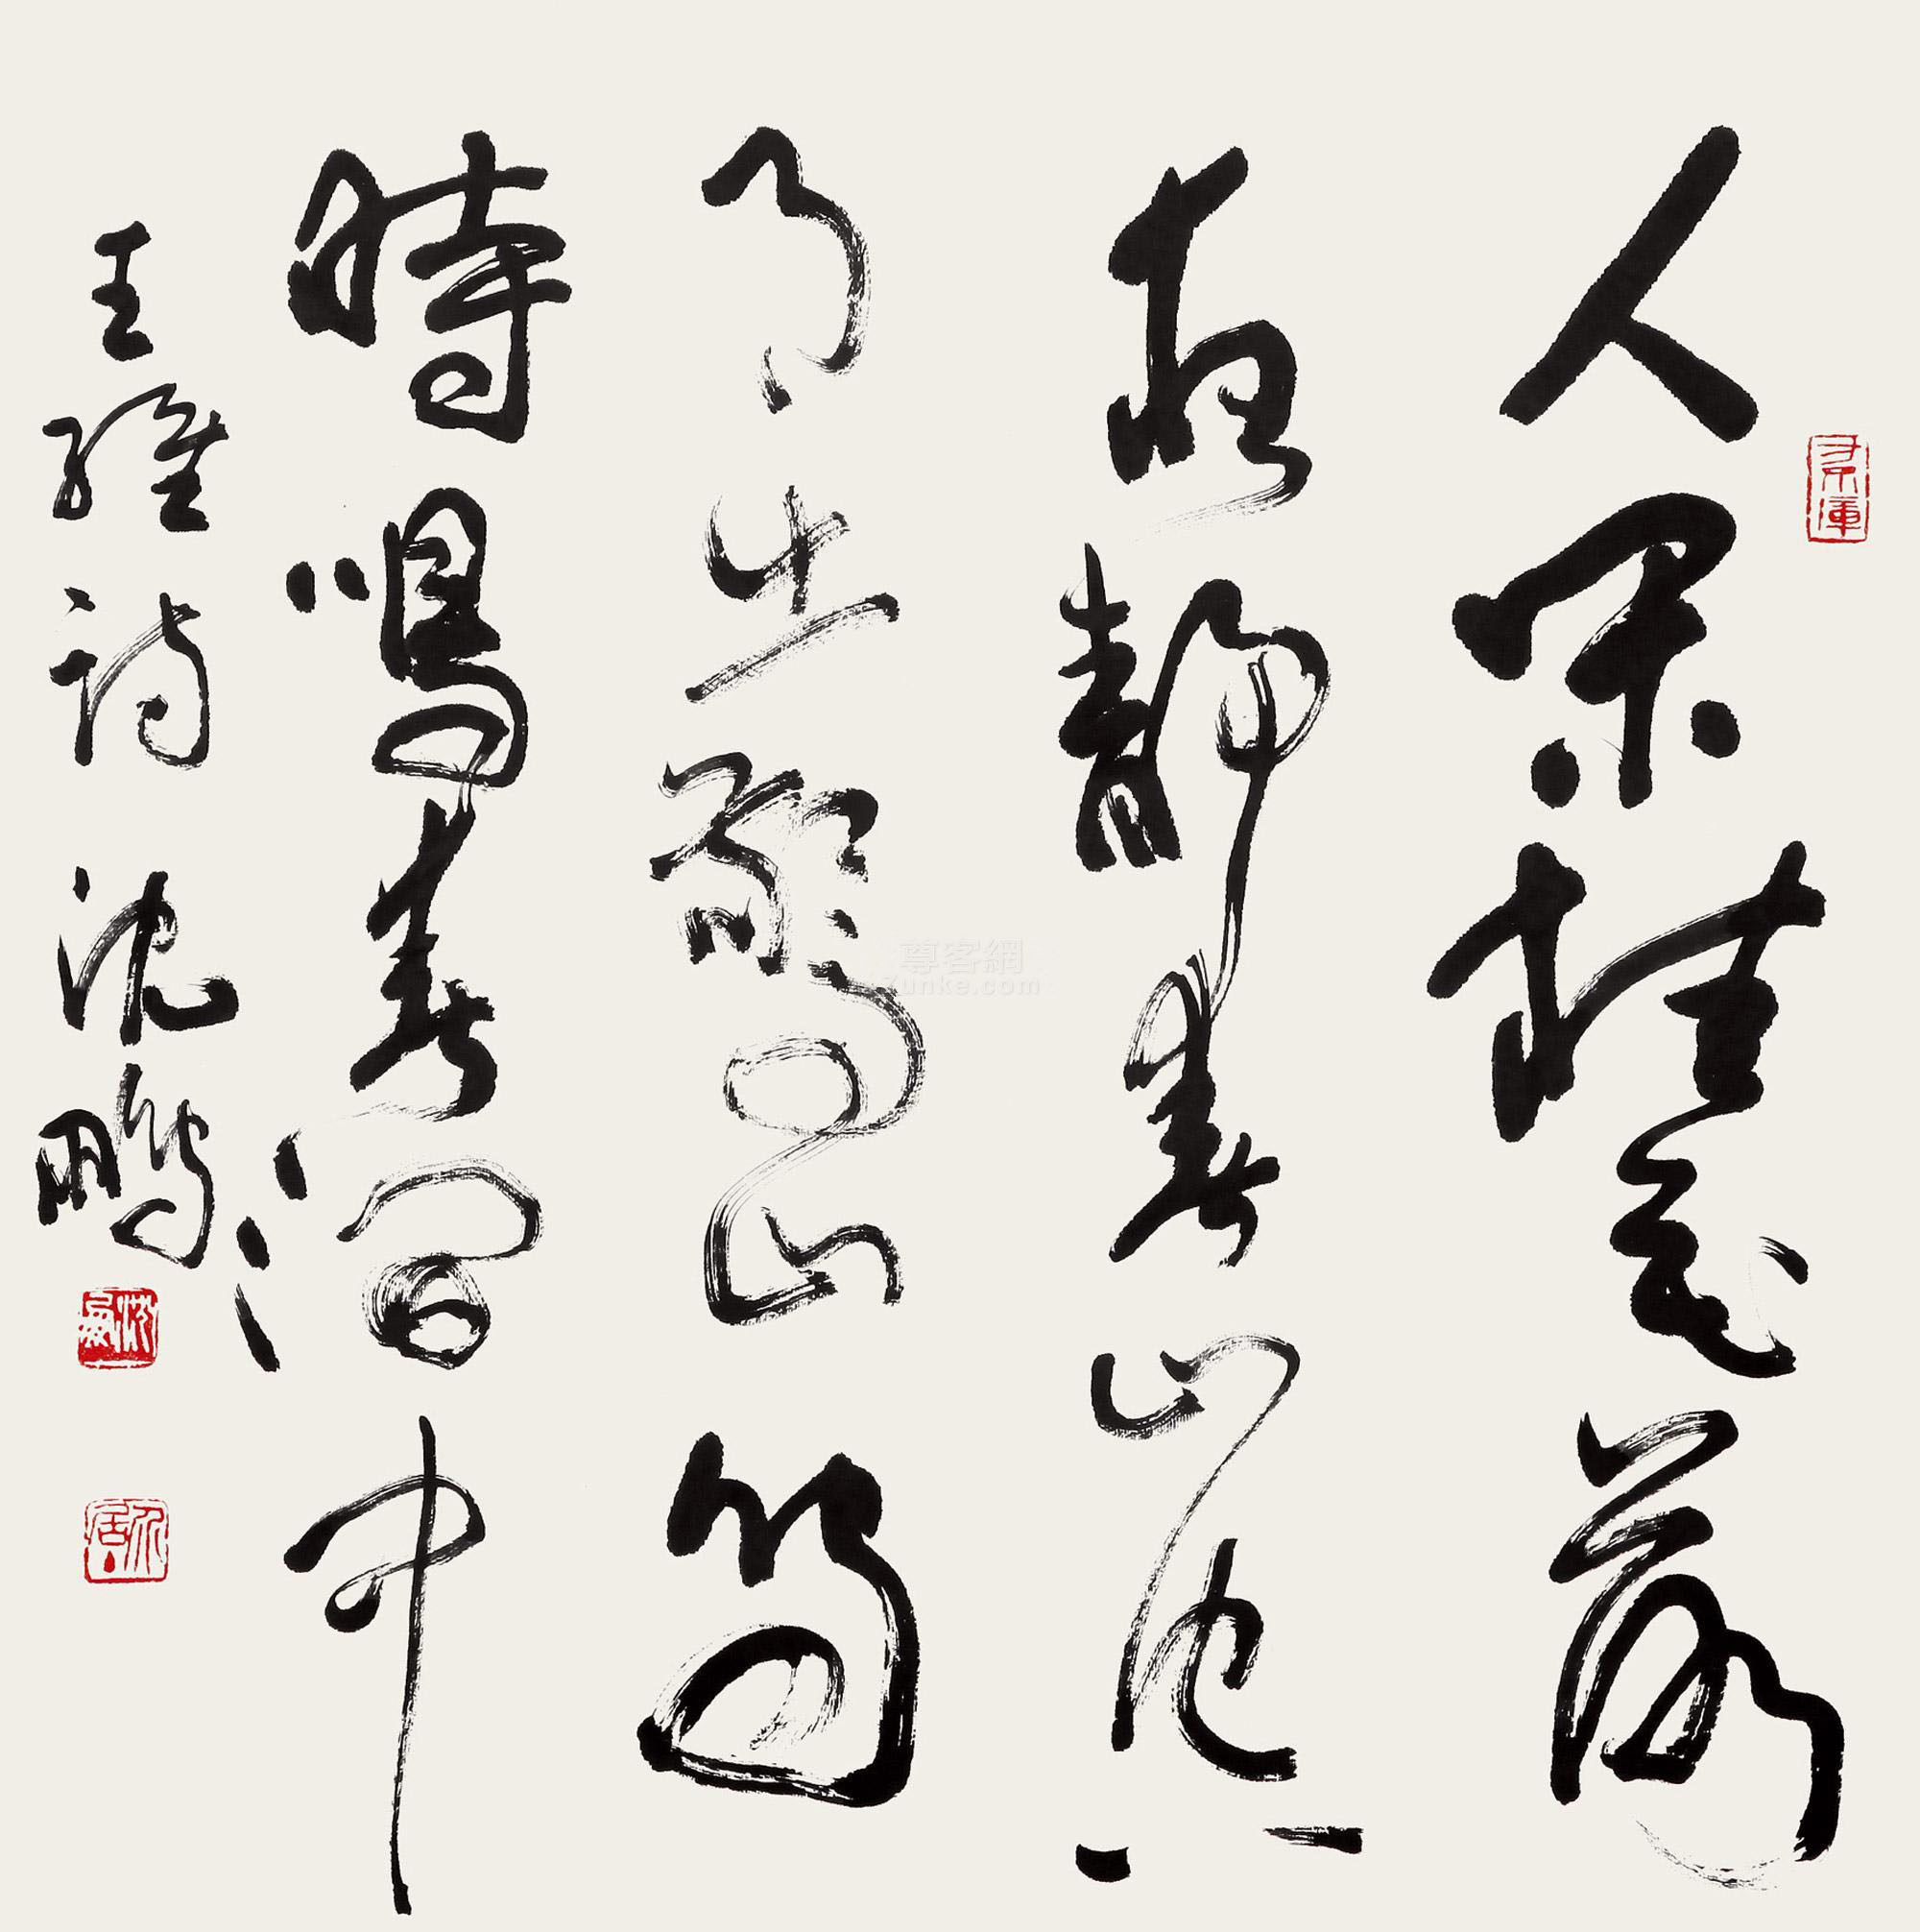 人閑桂花落
夜靜春山空
月出驚山鳥
時鳴春澗中
王維詩 沈鵬
尊客網
Zunke.com